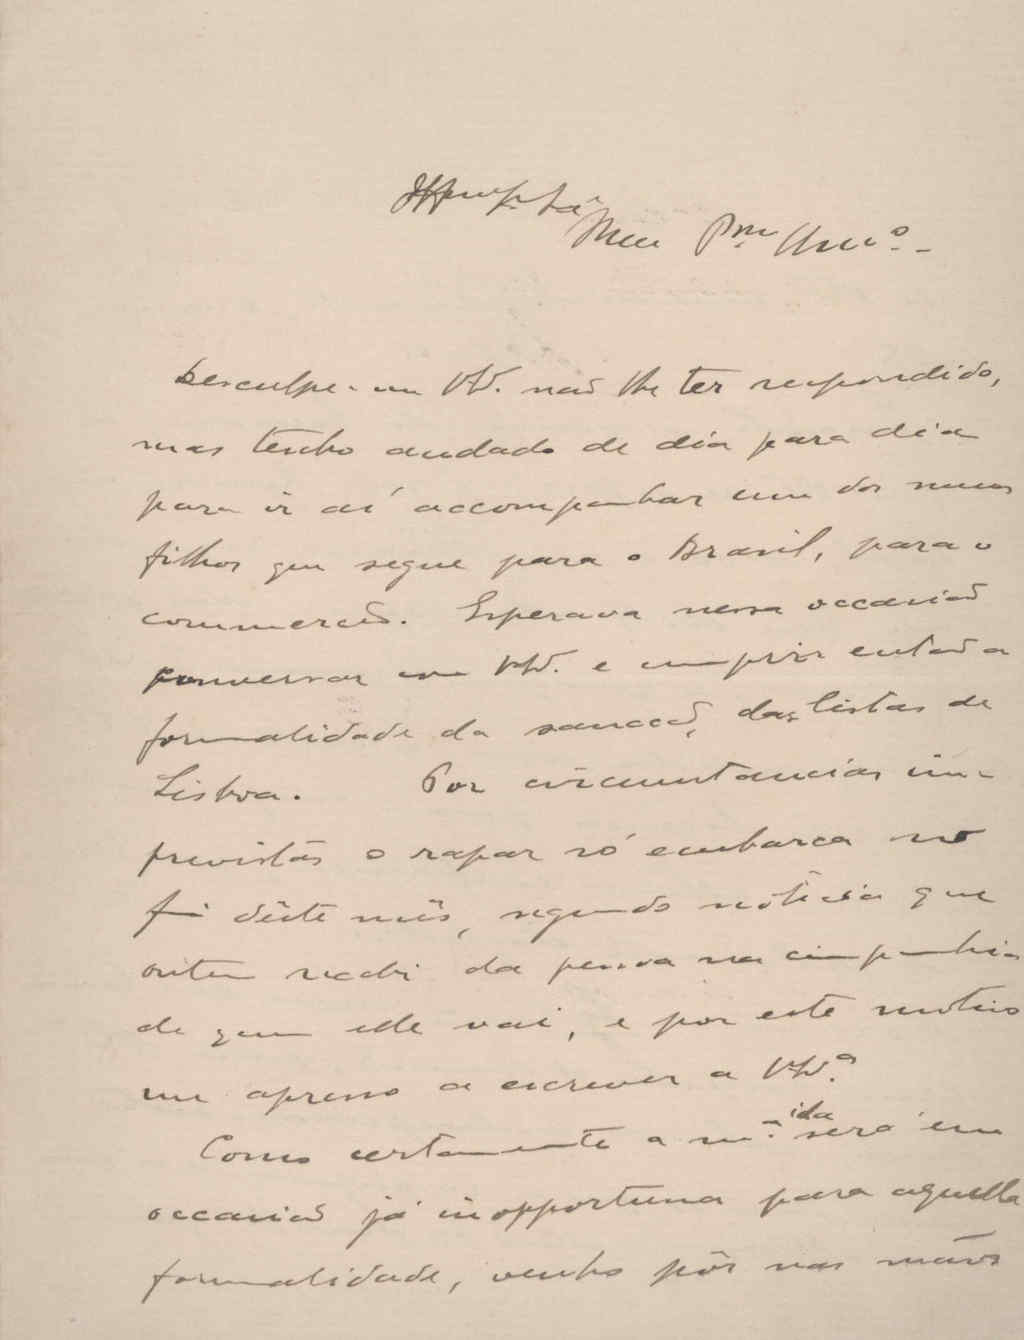 Meu Pre. Am.º -
Desculpe-me V.ª não lhe ter respondido,
mas tenho andado de dia para dia
para ir aí accompanhar um dos meus
filhos que segue para o Brasil, para o
commercio. Esperava nessa occasião
conversar com V.ª e cumprir então a
formalidade da sancção das listas de
Lisboa. Por circumstancias im-
previstas o rapaz só embarca no
fim dêste mês, segundo notícia que
ontem recebi da pessoa na companhia
de quem ele vai, e por este motivo
me apresso a escrever a V.ª
Como certamente a m.ª ida será em
occasião já inopportuna para aquella
formalidade, venho pôr nas mãos